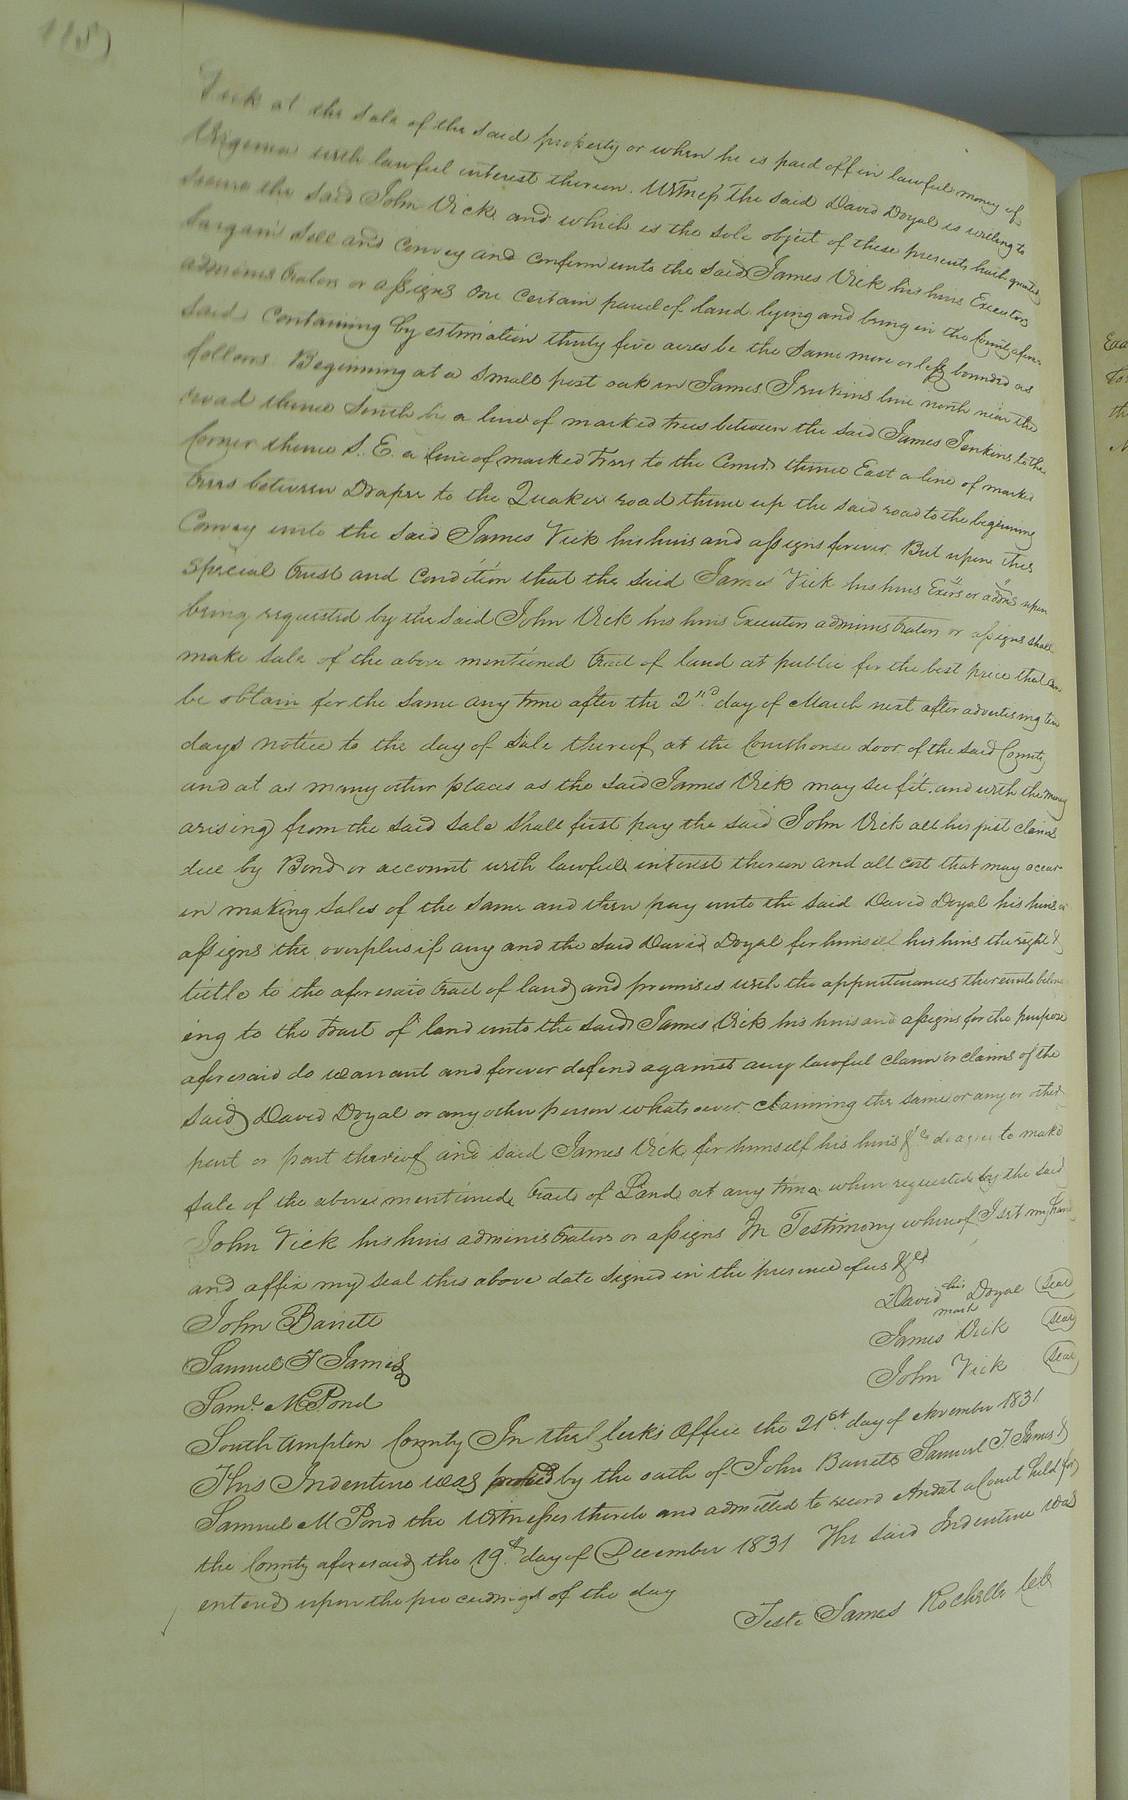 Vick at the sale of the said property or when he is paid off in lawful money of
Virginia with lawful interest thereon. Witness The said David Doyal is willing to
secure the said John Vick and which is the sole object of these presents hath granted
bargain sell and convey and confirm unto the said James Vick his heirs Executors
administrators or assigns one certain parcel of land lying and being in the County afore
said containing by estimation thirty five acres be the same more or less bounded as
follows Beginning at a small post oak in James Jenkins line north near the
road thence South by a line of marked trees between the said James Jenkins to the
Corner thence S. E. a line of marked trees to the Corner thence East a line of marked
trees between Draper to the Quaker road thence up the said road to the beginning
Convey unto the said James Vick his heirs and assigns forever. But upon this
Special trust and condition that the said James Vick his heirs Exors or admrs upon
being requested by the said John Vick his heirs Executors administrators or assigns shall
make sale of the above mentioned tract of land at public for the best price that can
be obtain for the same any time after the 2nd day of March next after advertising ten
days notice to the day of sale thereof at the Courthouse door of the said County
and at as many other places as the said James Vick may see fit. and with the money
arising from the said sale shall first pay the said John Vick all his just claims
due by Bond or account with lawful interest thereon and all cost that may occur
in making sales of the same and then pay unto the said David Doyal his heirs or
assigns the overplus if any and the said David Doyal for himself his heirs the right &
tittle to the aforesaid tract of land and premises with the appurtenances thereunto belong
ing to the tract of land unto the said James Vick his heirs and assigns for the purpose
aforesaid do warrant and forever defend against any lawful claim or claims of the
said David Doyal or any other person whatsoever claiming the same or any or other
part or part thereof and said James Vick for himself his heirs &c do agree to make
sale of the above mentioned tracts of Land at any time when requested by the said
John Vick his heirs administrators or assigns In Testimony whereof I set my hand
and affix my seal this above date signed in the presence of us &c
John Barrett David his mark Doyal (seal)
Samuel T James James Vick (seal)
Saml. M Pond John Vick (seal)
Southampton County In the Clerks Office the 21st. day of November 1831
This Indenture was proved by the oath of John Barrett Samuel T. James &
Samuel M Pond the Witnesses thereto and admitted to record And at a Court held for
the County aforesaid the 19th day of December 1831 The said Indenture was
entered upon the proceedings of the day
Teste James Rochelle Clk